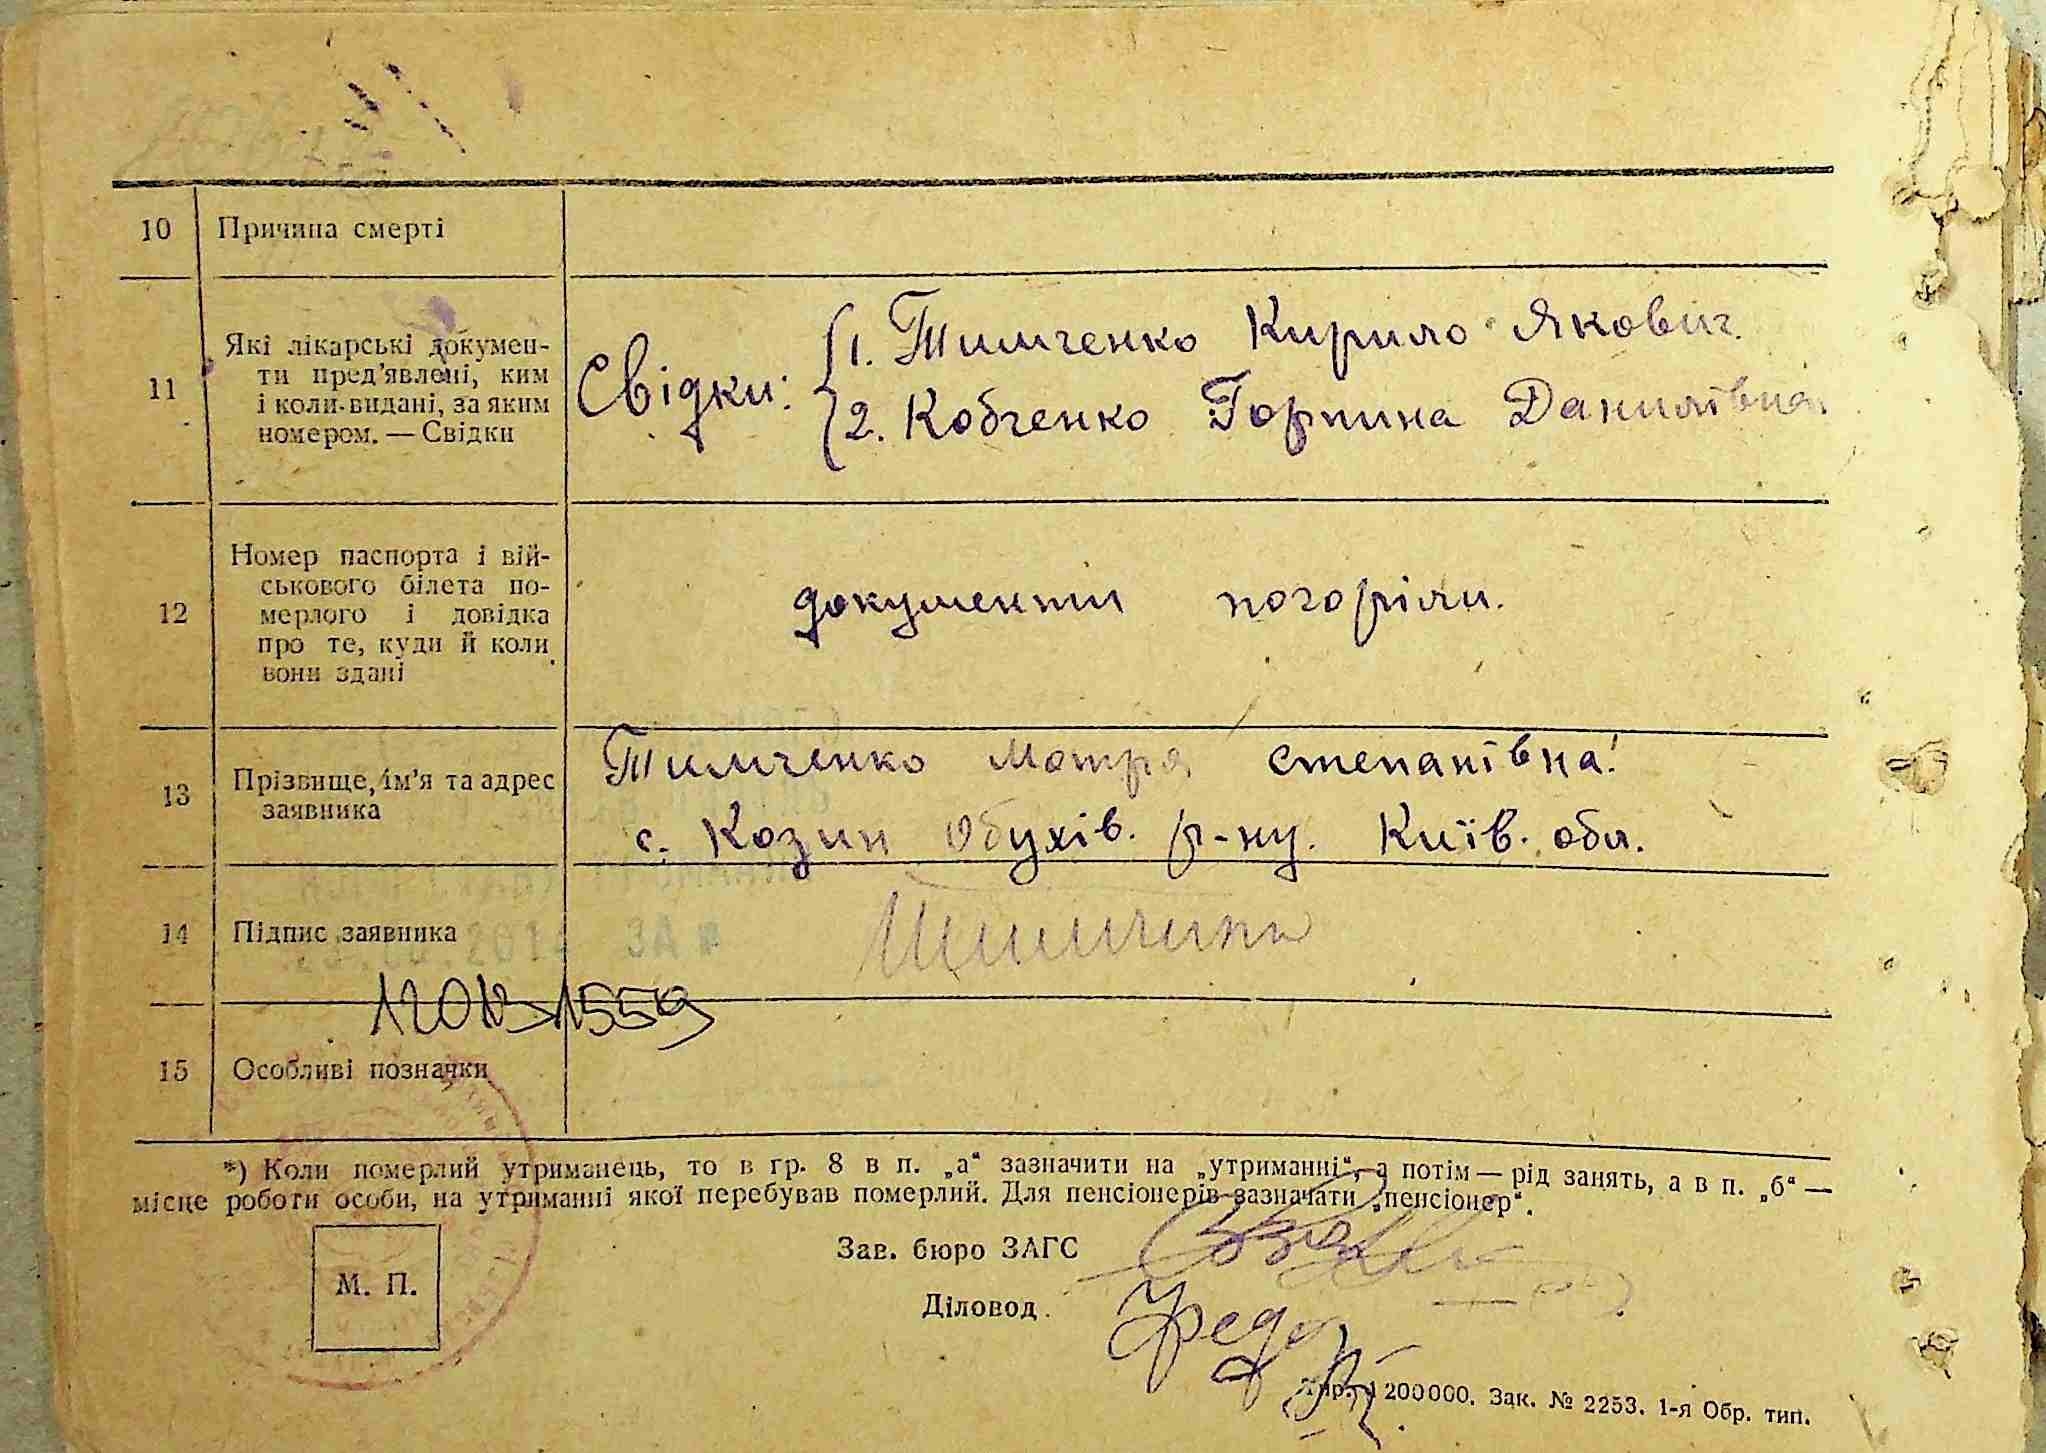 10 Причина смерті
11 Які лікарські докумен-
ти пред'явлені, ким
і коли видані, за яким
номером. — Свідки
Свідки: 1. Тимченко Кирило Якович.
2. Кобченко Горпина Данилівна
12 Номер паспорта і вій-
ськового білета по-
мерлого і довідка
про те, куди й коли
вони здані
документи погоріли.
13 Прізвище, ім'я та адрес
заявника
Тимченко Мотря Степанівна!
с. Козин Обухів. р-ну. Київ. обл.
14 Підпис заявника
15 Особливі позначки
*) Коли померлий утриманець, то в гр. 8 в п. „а“ зазначити на „утриманні“, а потім — рід занять, а в п. „б“ —
місце роботи особи, на утриманні якої перебував померлий. Для пенсіонерів зазначати „пенсіонер“.
Зав. бюро ЗАГС
М. П.
Діловод
200000. Зак. № 2253. 1-я Обр. тип.